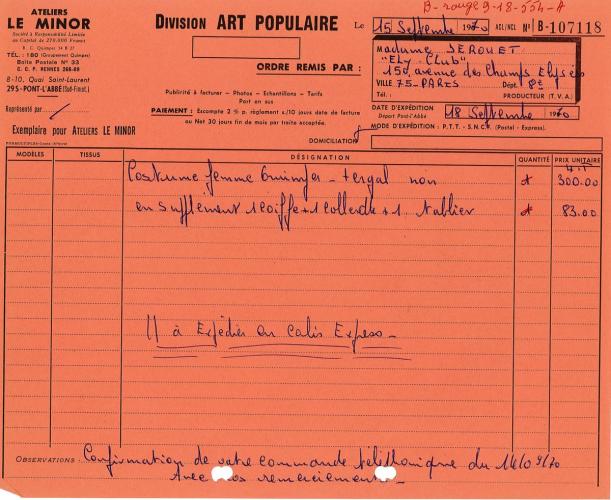 B-rouge 9-18-554-A
ATELIERS
LE MINOR
Société à Responsabilité Limitée
au Capital de 270.000 Francs
R. C. Quimper 54 B 27
TÉL. : 180 (Groupement Quimper)
Boîte Postale N° 33
C. C. P. RENNES 268-69
8-10, Quai Saint-Laurent
295-PONT-L'ABBÉ (Sud-Finist.)
Représenté par
Exemplaire pour ATELIERS LE MINOR
DIVISION ART POPULAIRE
ORDRE REMIS PAR :
Publicité à facturer — Photos — Echantillons — Tarifs
Port en sus
PAIEMENT : Escompte 2 % p. règlement s/10 jours date de facture
ou Net 30 jours fin de mois par traite acceptée.
DOMICILIATION
Le 15 Septembre 1970 ACL/NCL N° B-107118
Madame SEROUET
"ELY Club"
150 avenue des Champs Elysées
VILLE 75-PARIS Dépt. 8e
Tél. : PRODUCTEUR (T.V.A.)
DATE D'EXPÉDITION
Départ Pont-l'Abbé 18 Septembre 1970
MODE D'EXPÉDITION : P.T.T. - S.N.C.F. (Postal - Express).
MODÈLES TISSUS DÉSIGNATION QUANTITÉ PRIX UNITAIRE
H.T
Costume femme Quimper - tergal noir 1 300.00
en supplément 1 coiffe + 1 collerette + 1 tablier 1 83.00
// à Expédier en Colis Express -
OBSERVATIONS : Confirmation de votre commande téléphonique du 14/09/70
Avec nos remerciements -